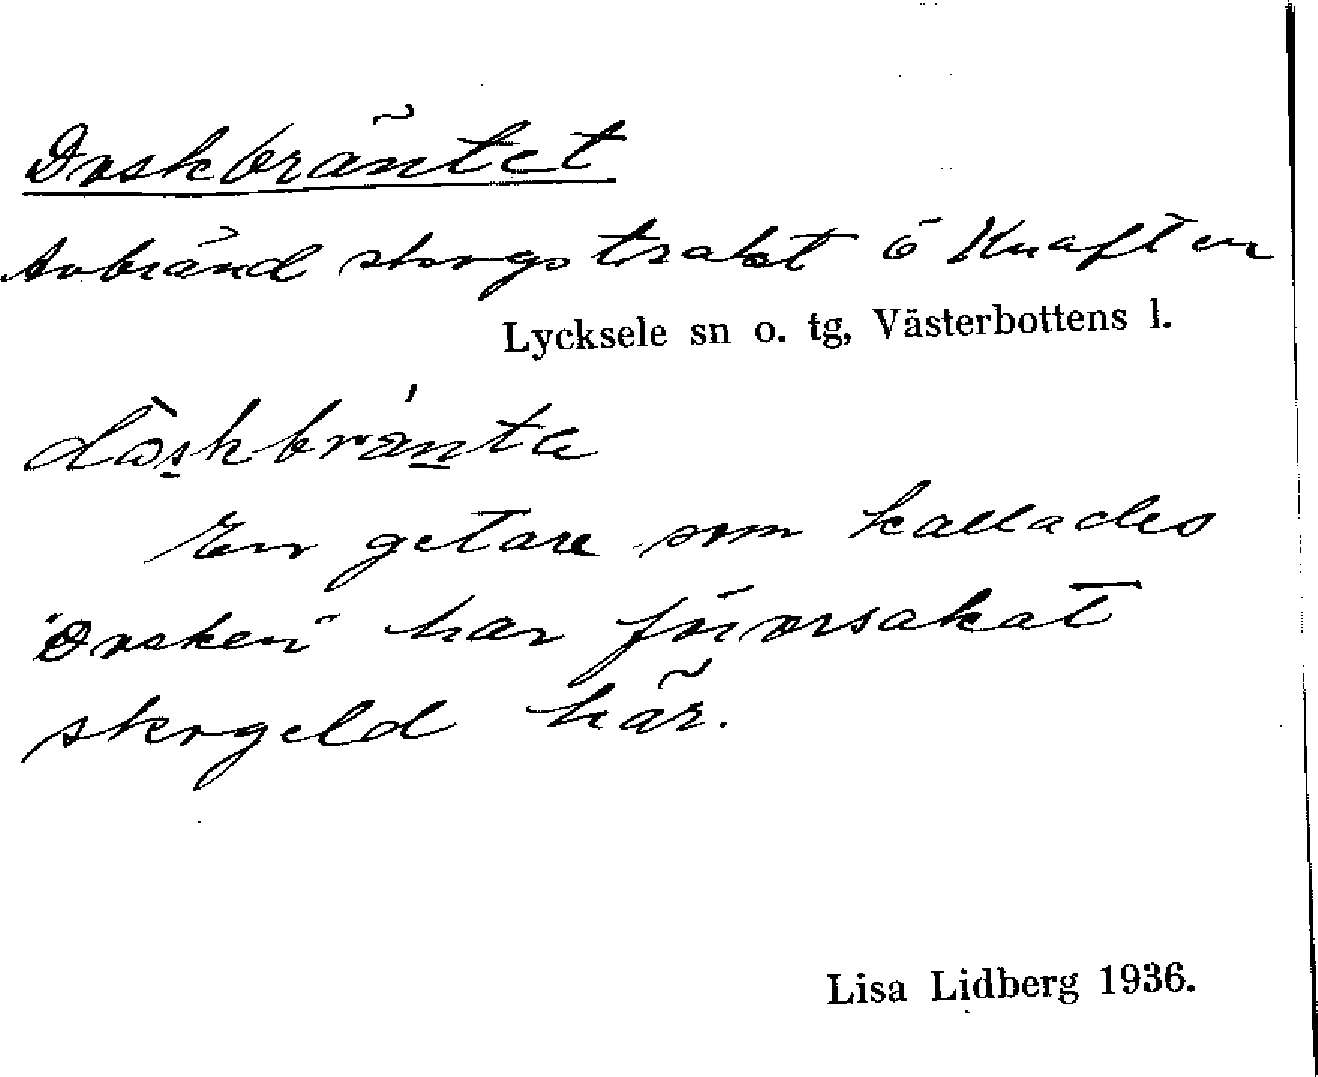 Doskbräntet
Avbränd skogstrakt ö Knaften
Lycksele sn o. tg, Västerbottens l.
En getare som kallades
"Dosken" har förorsakat
skogeld här.
Lisa Lidberg 1936.